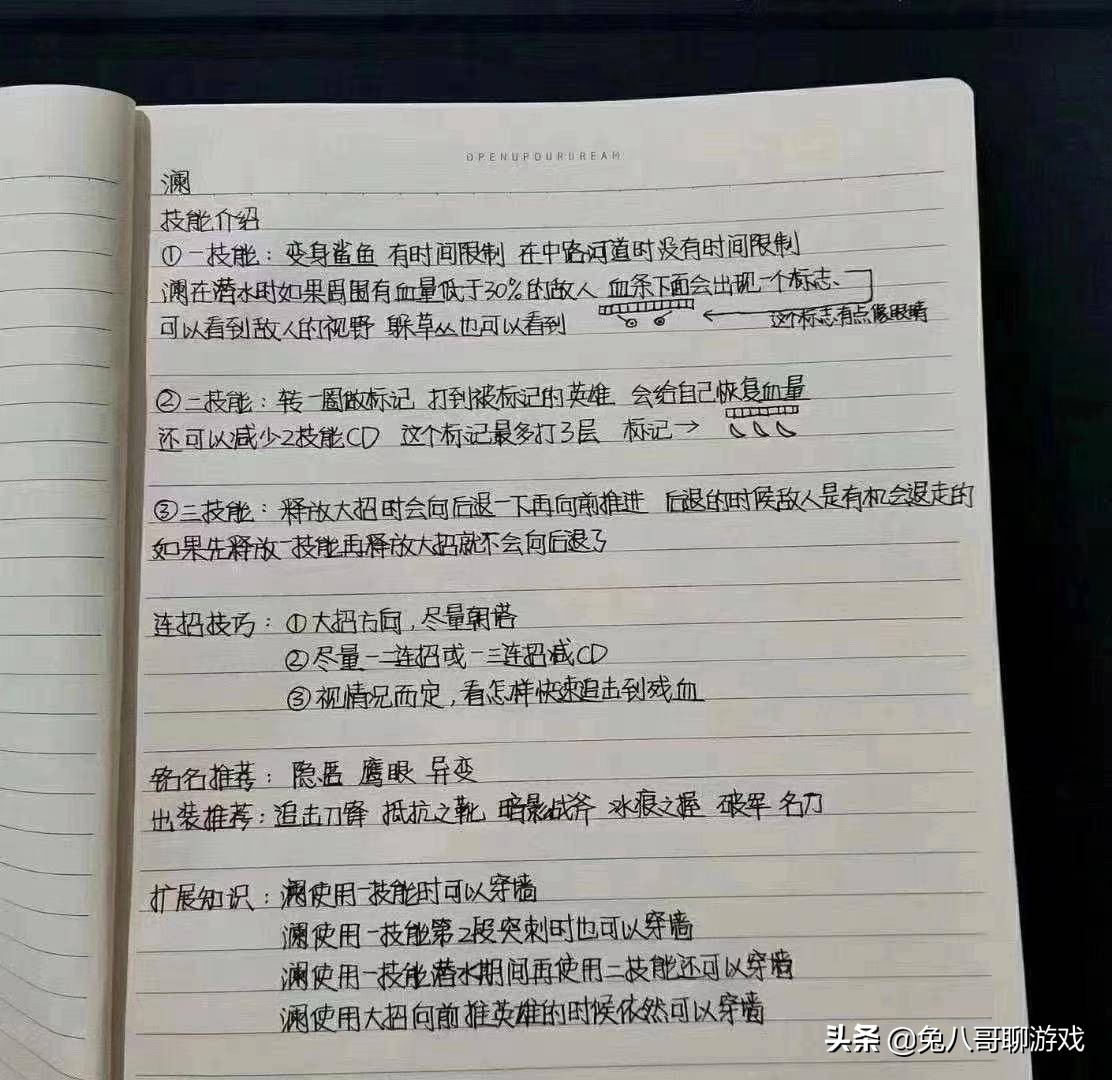 OPENUPOURDREAM
澜
技能介绍
①一技能：变身鲨鱼 有时间限制 在中路河道时没有时间限制
澜在潜水时如果周围有血量低于30%的敌人 血条下面会出现一个标志、
可以看到敌人的视野 躲草丛也可以看到
这个标志有点像眼睛
②二技能：转一圈做标记 打到被标记的英雄 会给自己恢复血量
还可以减少2技能CD 这个标记最多打3层 标记→
③三技能：释放大招时会向后退一下再向前推进 后退的时候敌人是有机会退走的
如果先释放一技能再释放大招就不会向后退了
连招技巧：①大招方向，尽量朝塔
②尽量一二连招或一三连招减CD
③视情况而定，看怎样快速追击到残血
铭名推荐：隐匿 鹰眼 异变
出装推荐：追击刀锋 抵抗之靴 暗影战斧 冰痕之握 破军 名刀
扩展知识：澜使用一技能时可以穿墙
澜使用一技能第2段突刺时也可以穿墙
澜使用一技能潜水期间再使用二技能还可以穿墙
澜使用大招向前推英雄的时候依然可以穿墙
头条 @兔八哥聊游戏